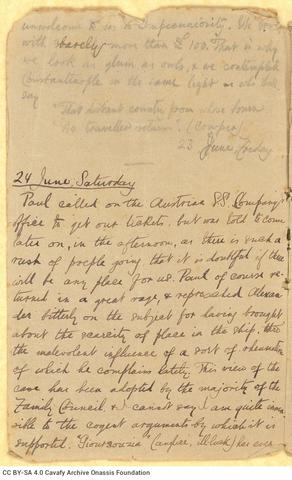 unwelcome to us is Impecuniosity. We
with barely more than £ 100. That is why
we look as glum as owls, & we contemplate
Constantinople in the same light as who
say
"That distant country from whose bourn
No traveller returns". (Cowper)
23 June, Friday
24 June, Saturday
Paul called on the Austrian SS. Company's
office to get our tickets, but was told to come
later on, in the afternoon, as there is such a
rush of people going that it is doubtful if there
will be any place for us. Paul of course re-
turned in a great rage & reproached Alexan-
der bitterly on the subject for having brought
about the scarcity of place in the ship, thro'
the malevolent influence of a sort of rheumatism
of which he complains lately. This view of the
case has been adopted by the majority of the
Family Council, & I cannot say I am quite insen-
sible to the cogent arguments by which it is
supported. has ever
CC BY-SA 4.0 Cavafy Archive Onassis Foundation